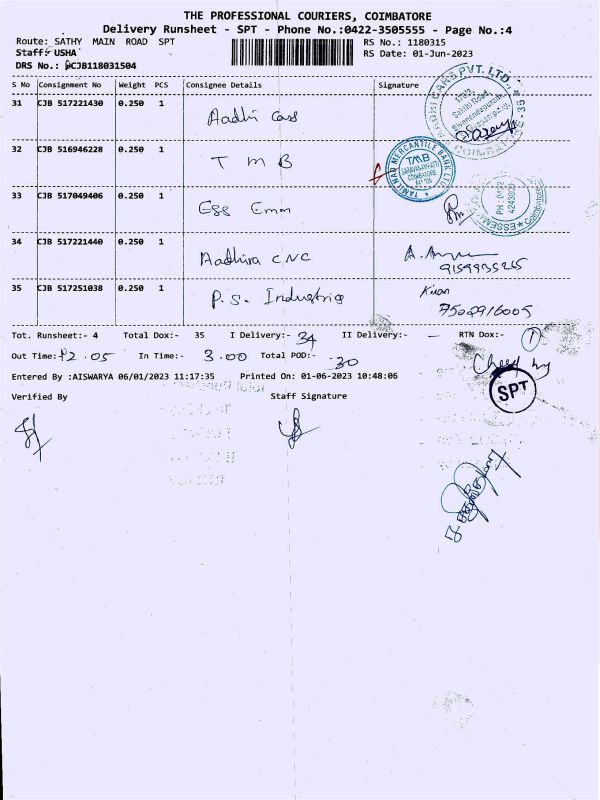 THE PROFESSIONAL COURIERS, COIMBATORE
Delivery Runsheet - SPT - Phone No.:0422-3505555 - Page No.:4
Route: SATHY MAIN ROAD SPT RS No.: 1180315
Staff: USHA RS Date: 01-Jun-2023
DRS No.: DCJB118031504
S No Consignment No Weight PCS Consignee Details Signature
31 CJB 517221430 0.250 1 Aadhi Cars
32 CJB 516946228 0.250 1 T M B
TAMILNAD MERCANTILE BANK LTD
TMB
COIMBATORE
33 CJB 517049406 0.250 1 Ess Emm
PH: 0422
4243800
34 CJB 517221440 0.250 1 Aadhira CNC
9159935265
35 CJB 517251038 0.250 1 P.S. Industries Kiran
7502916005
Tot. Runsheet:- 4 Total Dox:- 35 I Delivery:- 34 II Delivery:- - RTN Dox:- 1
Out Time: 12.05 In Time:- 3.00 Total POD:- 30
Entered By :AISWARYA 06/01/2023 11:17:35 Printed On: 01-06-2023 10:48:06
SPT
Verified By Staff Signature